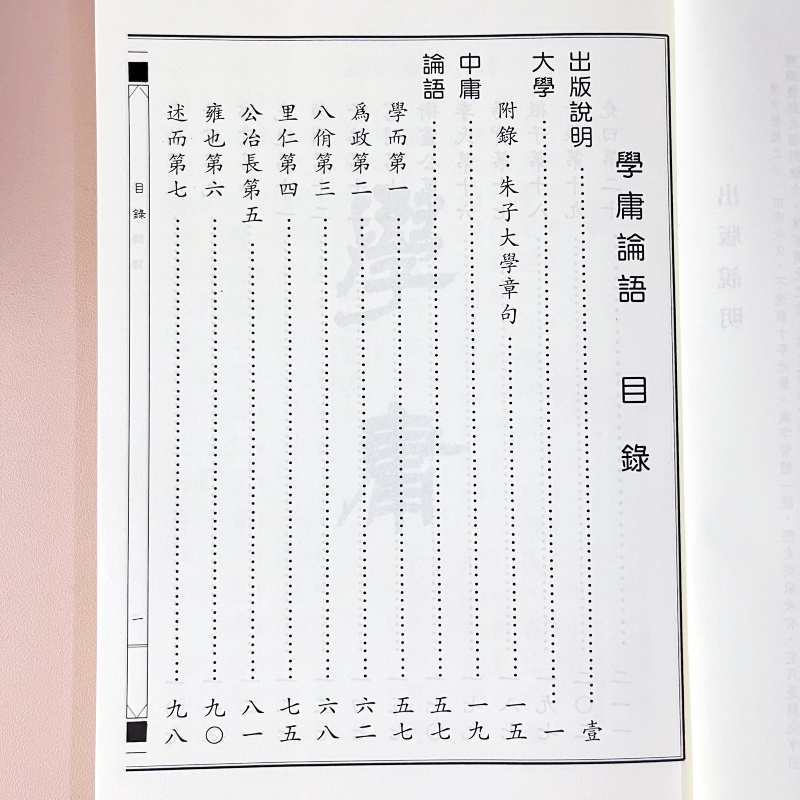 學庸論語 目錄
出版說明……壹
大學……一
附錄：朱子大學章句……一五
中庸……一九
論語……五七
學而第一……五七
爲政第二……六二
八佾第三……六八
里仁第四……七五
公冶長第五……八一
雍也第六……九〇
述而第七……九八
目錄
一